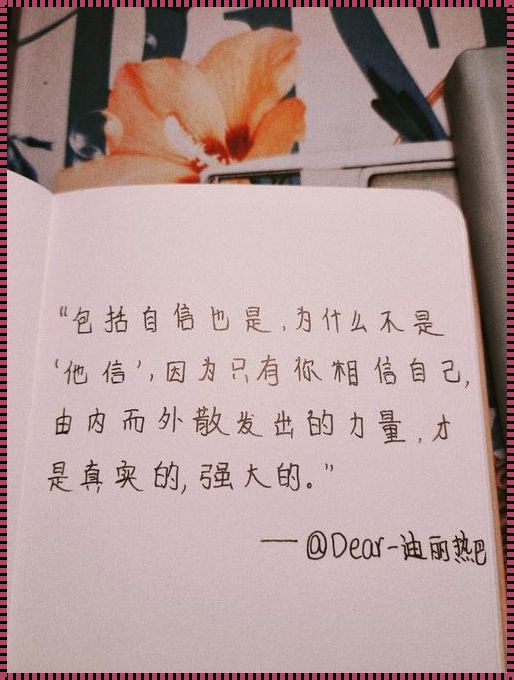 “包括自信也是,为什么不是
‘他信’,因为只有你相信自己,
由内而外散发出的力量,才
是真实的,强大的。”
—@Dear-迪丽热巴